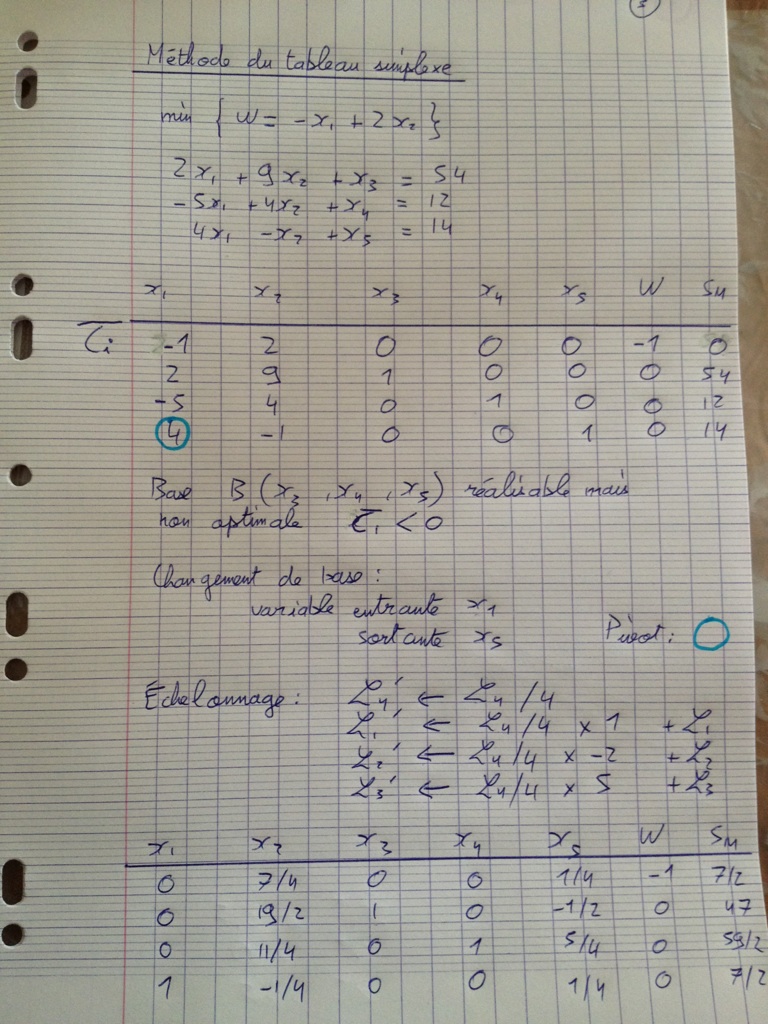 Méthode du tableau simplexe
min { W = -x₁ + 2x₂ }
2x₁ + 9x₂ + x₃ = 54
-5x₁ + 4x₂ + x₄ = 12
4x₁ - x₂ + x₅ = 14
x₁ x₂ x₃ x₄ x₅ W SM
c̄ᵢ -1 2 0 0 0 -1 0
2 9 1 0 0 0 54
-5 4 0 1 0 0 12
4 -1 0 0 1 0 14
Base B (x₃, x₄, x₅) réalisable mais
non optimale c̄₁ < 0
Changement de base :
variable entrante x₁
sortante x₅ Pivot : ○
Échelonnage : L₄' ← L₄ /4
L₁' ← L₄/4 × 1 + L₁
L₂' ← L₄/4 × -2 + L₂
L₃' ← L₄/4 × 5 + L₃
x₁ x₂ x₃ x₄ x₅ W SM
0 7/4 0 0 1/4 -1 7/2
0 19/2 1 0 -1/2 0 47
0 11/4 0 1 5/4 0 59/2
1 -1/4 0 0 1/4 0 7/2